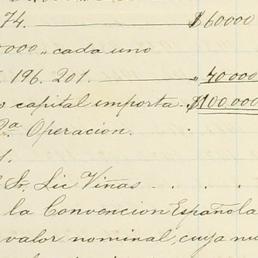 74. $60000
0000 „ cada uno
196. 201. „ 40000
capital importa. $100.000
2a Operacion.
Sr. Lic Viñas . . .
la Convencion Española
valor nominal, cuya nu